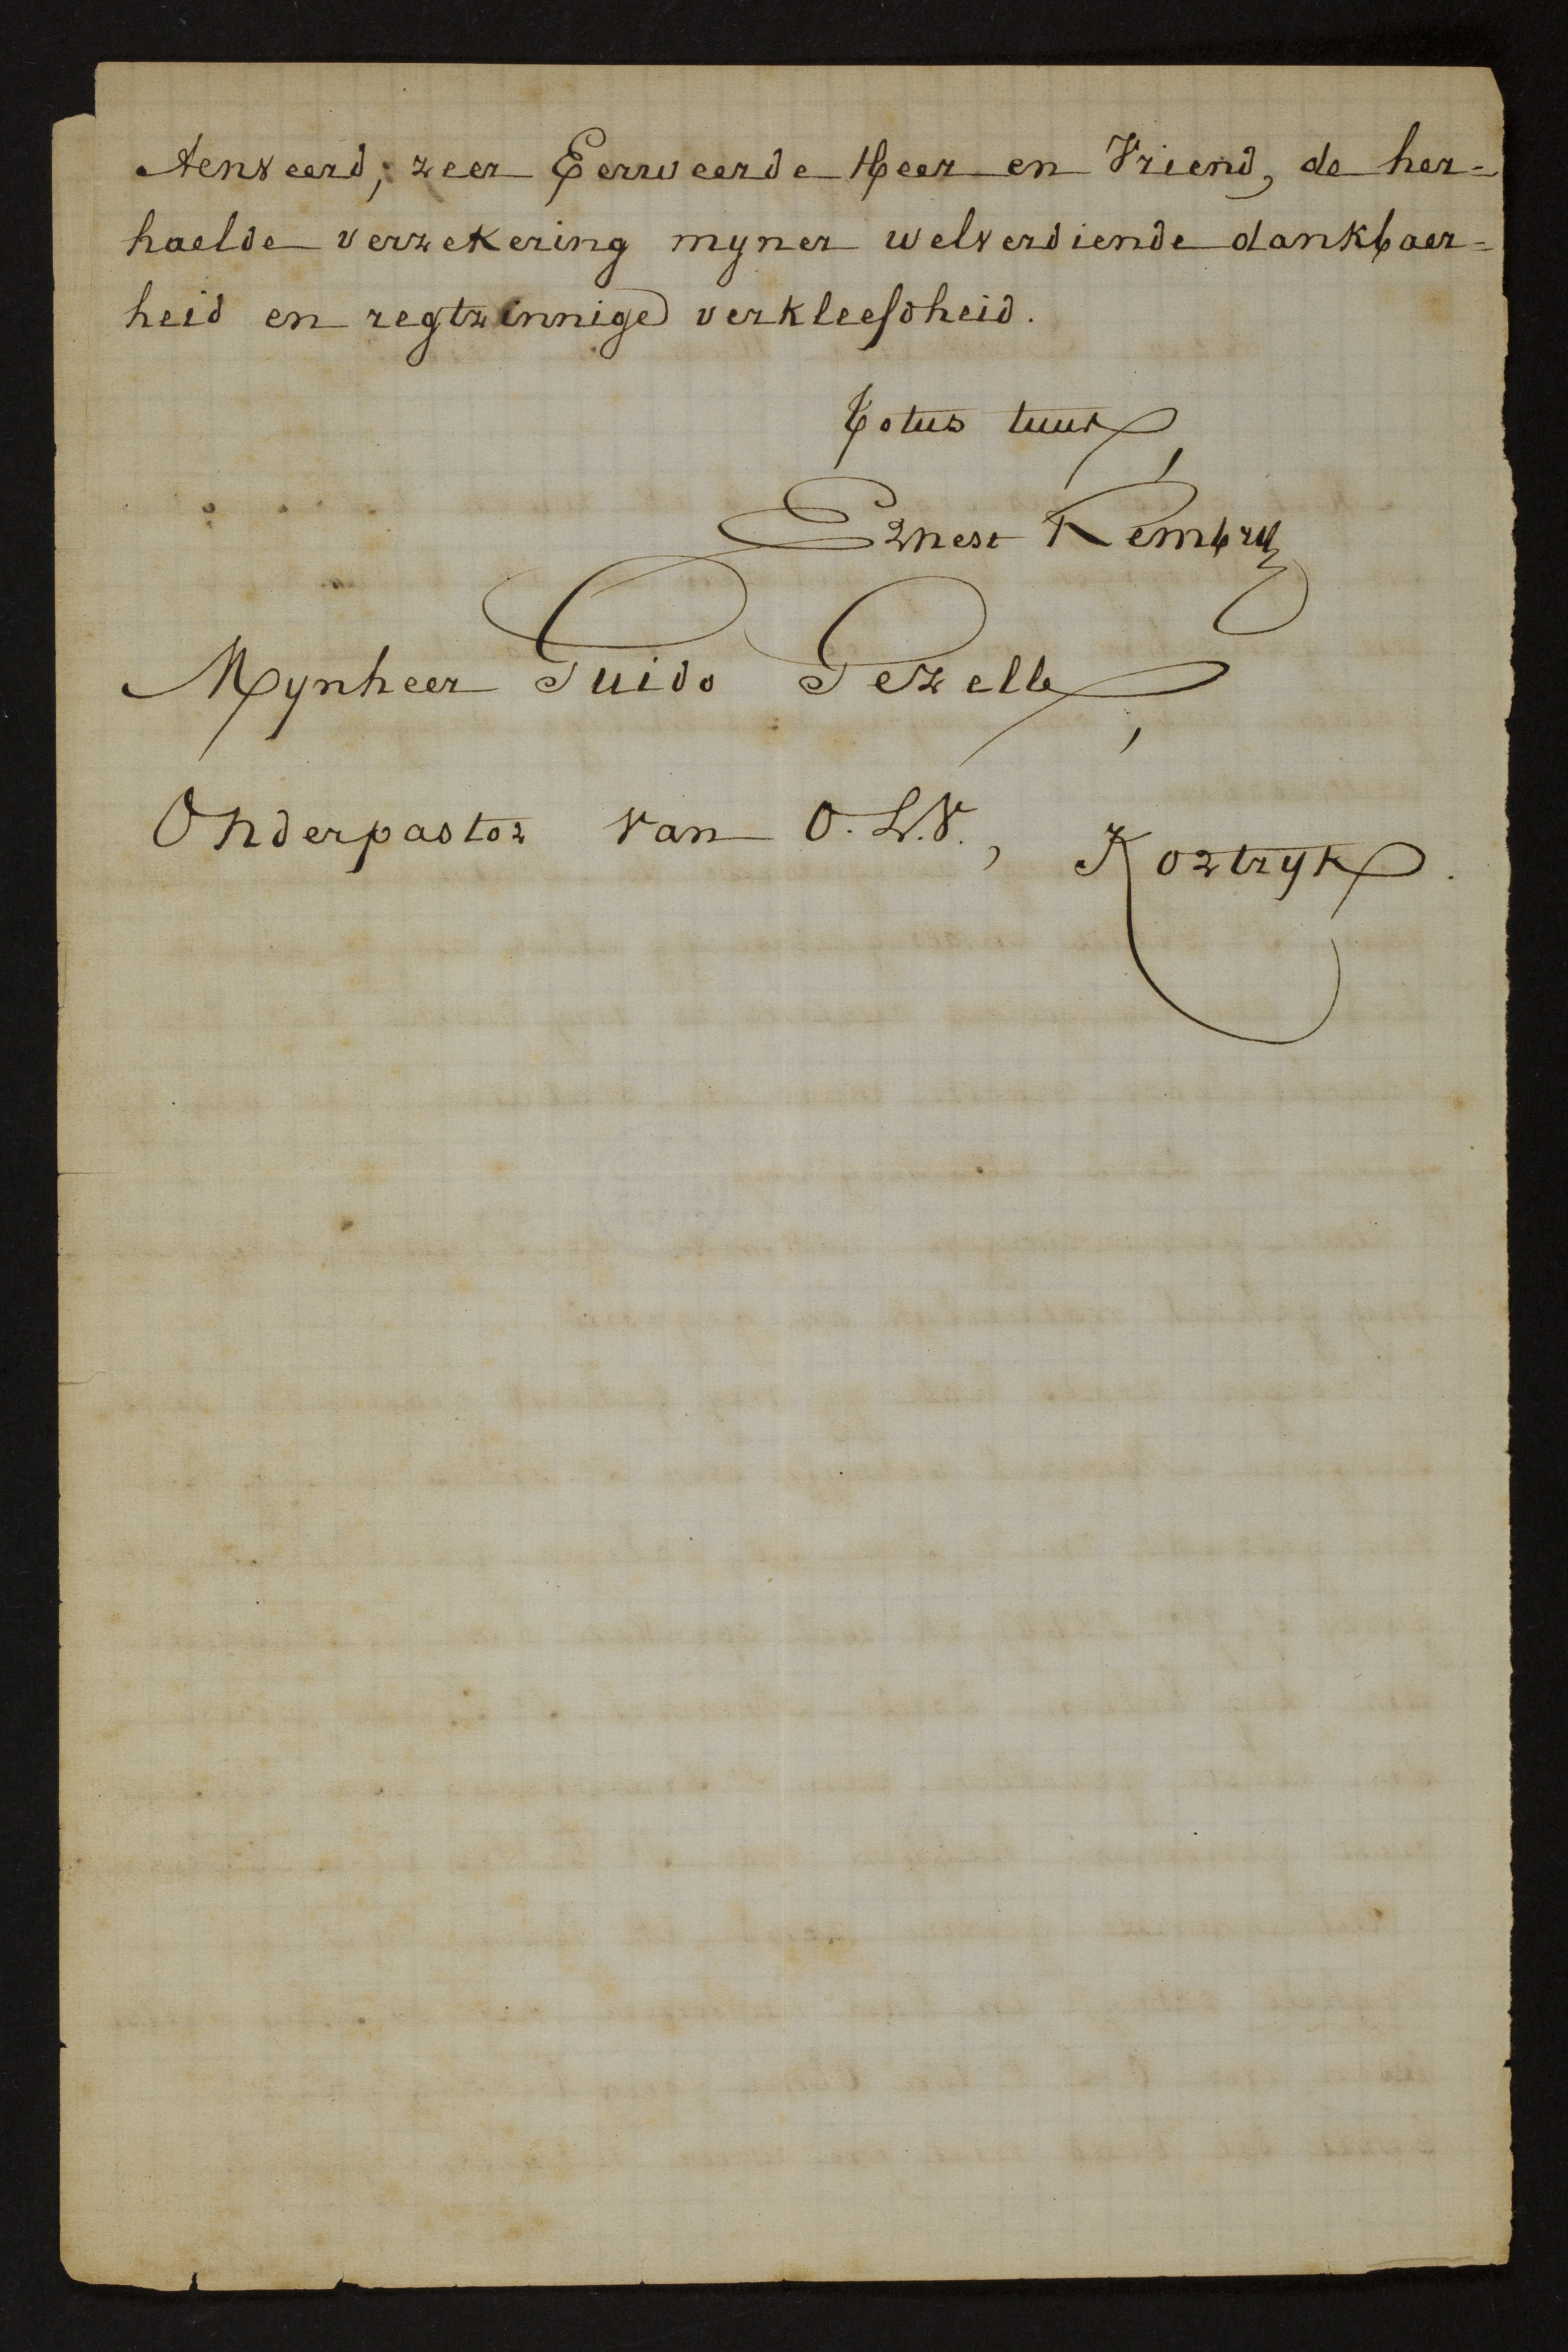 Aenveerd, zeer Eerweerde Heer en Vriend, de her=
haelde verzekering myner welverdiende dankbaer=
heid en regtzinnige verkleefdheid.
Totus tuus,
Ernest Rembry
Mynheer Guido Gezelle,
Onderpastor van O.L.V., Kortryk.